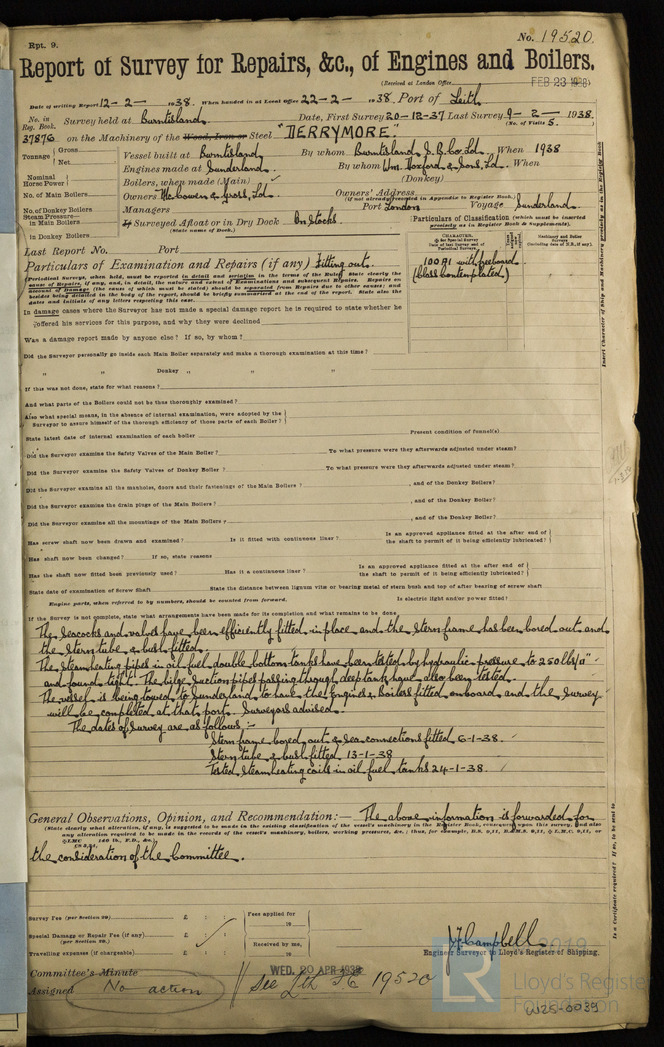 Rpt. 9.
No. 19520.
Report of Survey for Repairs, &c., of Engines and Boilers.
(Received at London Office FEB 23 1938)
Date of writing Report 12-2- 1938. When handed in at Local Office 22-2- 1938. Port of Leith
No. in Reg. Book. Survey held at Burntisland. Date, First Survey 20-12-37 Last Survey 9-2- 1938.
(No. of Visits 5.)
37876 on the Machinery of the Wood, Iron or Steel "DERRYMORE."
Tonnage Gross Net Vessel built at Burntisland By whom Burntisland S.B. Co. Ld. When 1938
Engines made at Sunderland. By whom Wm. Doxford & Sons, Ld. When
Nominal Horse Power Boilers, when made (Main) (Donkey)
No. of Main Boilers Owners McCowen & Gross, Ld. Owners' Address
(if not already recorded in Appendix to Register Book.)
No. of Donkey Boilers Managers Port London Voyage Sunderland.
Steam Pressure in Main Boilers If Surveyed Afloat or in Dry Dock On Stocks.
(State name of Dock.)
in Donkey Boilers
Particulars of Classification (which must be inserted precisely as in Register Book & Supplements).
Last Report No. Port
CHARACTER.
Particulars of Examination and Repairs (if any) Fitting out.
100 A1 with freeboard
(Class contemplated)
(Periodical Surveys, when held, must be reported in detail and seriatim in the terms of the Rules. State clearly the
cause of Repairs, if any, and, in detail, the nature and extent of Examinations and subsequent Repairs. Repairs on
account of Damage (the cause of which must be stated) should be separated from Repairs due to other causes; and
besides being detailed in the body of the report, should be briefly summarised at the end of the report. State also the
dates and initials of any letters respecting this case.
In damage cases where the Surveyor has not made a special damage report he is required to state whether he
offered his services for this purpose, and why they were declined
Was a damage report made by anyone else? If so, by whom?
Did the Surveyor personally go inside each Main Boiler separately and make a thorough examination at this time?
" Donkey " " "
If this was not done, state for what reasons?
And what parts of the Boilers could not be thus thoroughly examined?
Also what special means, in the absence of internal examination, were adopted by the
Surveyor to assure himself of the thorough efficiency of those parts of each Boiler?
State latest date of internal examination of each boiler Present condition of funnel(s)
Did the Surveyor examine the Safety Valves of the Main Boiler? To what pressure were they afterwards adjusted under steam?
Did the Surveyor examine the Safety Valves of Donkey Boiler? To what pressure were they afterwards adjusted under steam?
Did the Surveyor examine all the manholes, doors and their fastenings of the Main Boilers? , and of the Donkey Boilers?
Did the Surveyor examine the drain plugs of the Main Boilers? , and of the Donkey Boilers?
Did the Surveyor examine all the mountings of the Main Boilers? , and of the Donkey Boiler?
Has screw shaft now been drawn and examined? Is it fitted with continuous liner? Is an approved appliance fitted at the after end of the shaft to permit of it being efficiently lubricated?
Has shaft now been changed? If so, state reasons
Has the shaft now fitted been previously used? Has it a continuous liner? Is an approved appliance fitted at the after end of the shaft to permit of it being efficiently lubricated?
State date of examination of Screw Shaft State the distance between lignum vitæ or bearing metal of stern bush and top of after bearing of screw shaft
Engine parts, when referred to by numbers, should be counted from forward. Is electric light and/or power fitted?
If the Survey is not complete, state what arrangements have been made for its completion and what remains to be done
The Seacocks and valves have been efficiently fitted in place and the Stern frame has been bored out and
the Stern tube & bush fitted.
The Steam heating pipes in oil fuel double bottom tanks have been tested by hydraulic pressure to 250 lbs/□"
and found tight. The bilge suction pipes passing through deep tank have also been tested.
The vessel is being towed to Sunderland to have the Engines & Boilers fitted onboard and the Survey
will be completed at that port. Surveyors advised.
The dates of Survey are as follows:-
Stern frame bored out & sea connections fitted 6-1-38.
Stern tube & bush fitted 13-1-38
Tested steam heating coils in oil fuel tanks 24-1-38.
General Observations, Opinion, and Recommendation:— The above information is forwarded for
(State clearly what alteration, if any, is suggested to be made in the existing classification of the vessel's machinery in the Register Book, consequent upon this survey, and also
any alteration required to be made in the records of the vessel's machinery, boilers, working pressures, &c.; thus, for example, B.S. 9,11, B.&M.S. 9,11, or L.M.C. 9,11, or
the consideration of the Committee.
Survey Fee (per Section 29) £ : : Fees applied for
19
Special Damage or Repair Fee (if any) (per Section 29.) £ : : Received by me,
Travelling expenses (if chargeable) £ : : 19
J. F. Campbell
Engineer Surveyor to Lloyd's Register of Shipping.
Committee's Minute WED. 20 APR 1938
Assigned No action See Lth J.C 19520
Insert Character of Ship and Machinery precisely as in the Register Book
Is a Certificate required? If so, to be sent to
© 2019
LR
Lloyd's Register
Foundation
W25-0039